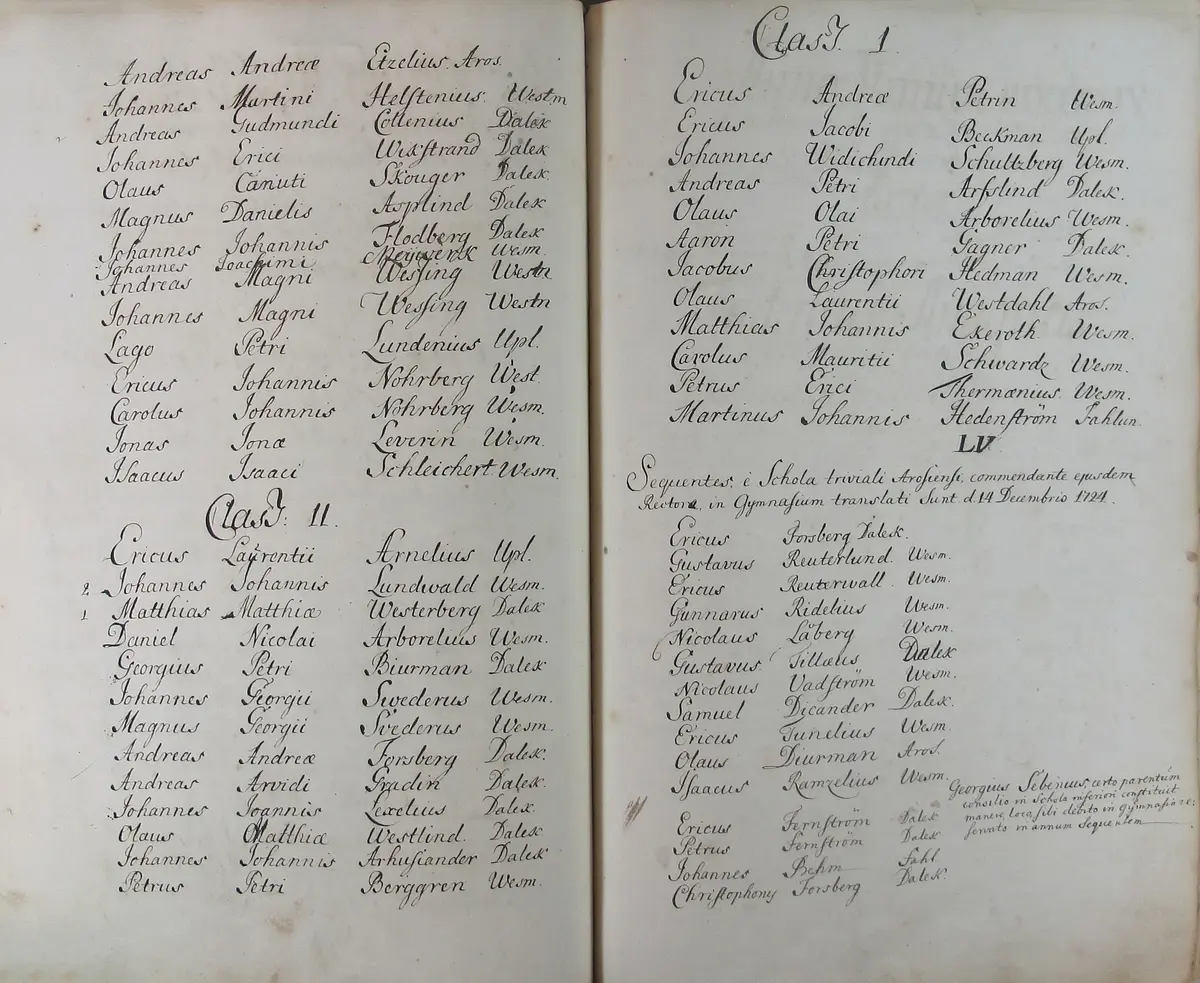 Andreas Andreæ Etzelius. Aros.
Johannes Martini Helstenius. Westm
Andreas Gudmundi Collenius Dalek
Johannes Erici Wikstrand Dalek
Olaus Canuti Skouger Dalek
Magnus Danielis Asplind Dalek
Johannes Johannis Flodberg Dalek
Johannes Joachimi Wesm.
Andreas Magni Wessing Westn
Johannes Magni Wessing Westn
Lago Petri Lundenius Upl.
Ericus Johannis Nohrberg West.
Carolus Johannis Nohrberg Wesm.
Jonas Jonæ Leverin Wesm.
Isaacus Isaaci Schleichert Wesm.
Class: II.
Ericus Laurentii Arnelius Upl.
2. Johannes Johannis Lundwald Wesm.
1 Matthias Matthiæ Westerberg Dalek
Daniel Nicolai Arborelius Wesm.
Georgius Petri Biurman Dalek
Johannes Georgii Swederus Wesm.
Magnus Georgii Svederus Wesm.
Andreas Andreæ Forsberg Dalek.
Andreas Arvidi Gradin Dalek.
Johannes Joannis Lexelius Dalek.
Olaus Matthiæ Westlind. Dalek
Johannes Johannis Arhusiander Dalek
Petrus Petri Berggren Wesm.
Class. I.
Ericus Andreæ Petrin Wesm.
Ericus Jacobi Beckman Upl.
Johannes Widichindi Schultzberg Wesm.
Andreas Petri Arfslind Dalek.
Olaus Olai Arborelius Wesm.
Aaron Petri Gagner Dalek.
Jacobus Christophori Hedman Wesm.
Olaus Laurentii Westdahl Aros.
Matthias Johannis Ekeroth Wesm.
Carolus Mauritii Schwardz Wesm.
Petrus Erici Thermænius Wesm.
Martinus Johannis Hedenström Fahlun.
LV.
Sequentes, è Schola triviali Arosiensi, commendante ejusdem
Rectore, in Gymnasium translati sunt d. 14 Decembris 1724.
Ericus Forsberg Dalek.
Gustavus Reuterlund Wesm.
Ericus Reuterwall Wesm.
Gunnarus Ridelius Wesm.
Nicolaus Låberg Wesm.
Gustavus Tillæus Dalek
Nicolaus Vadström Wesm.
Samuel Dicander Dalek.
Ericus Tunelius Wesm.
Olaus Diurman Aros.
Isaacus Ramzelius Wesm.
Georgius Sebenius, certo parentum
consilio in Schola inferiori constituit
manere, loco sibi debito in Gymnasio re-
servato in annum sequentem
Ericus Fernström Dalek
Petrus Fernström Dalek
Johannes Behm Fahl
Christophorus Forsberg Dalek.